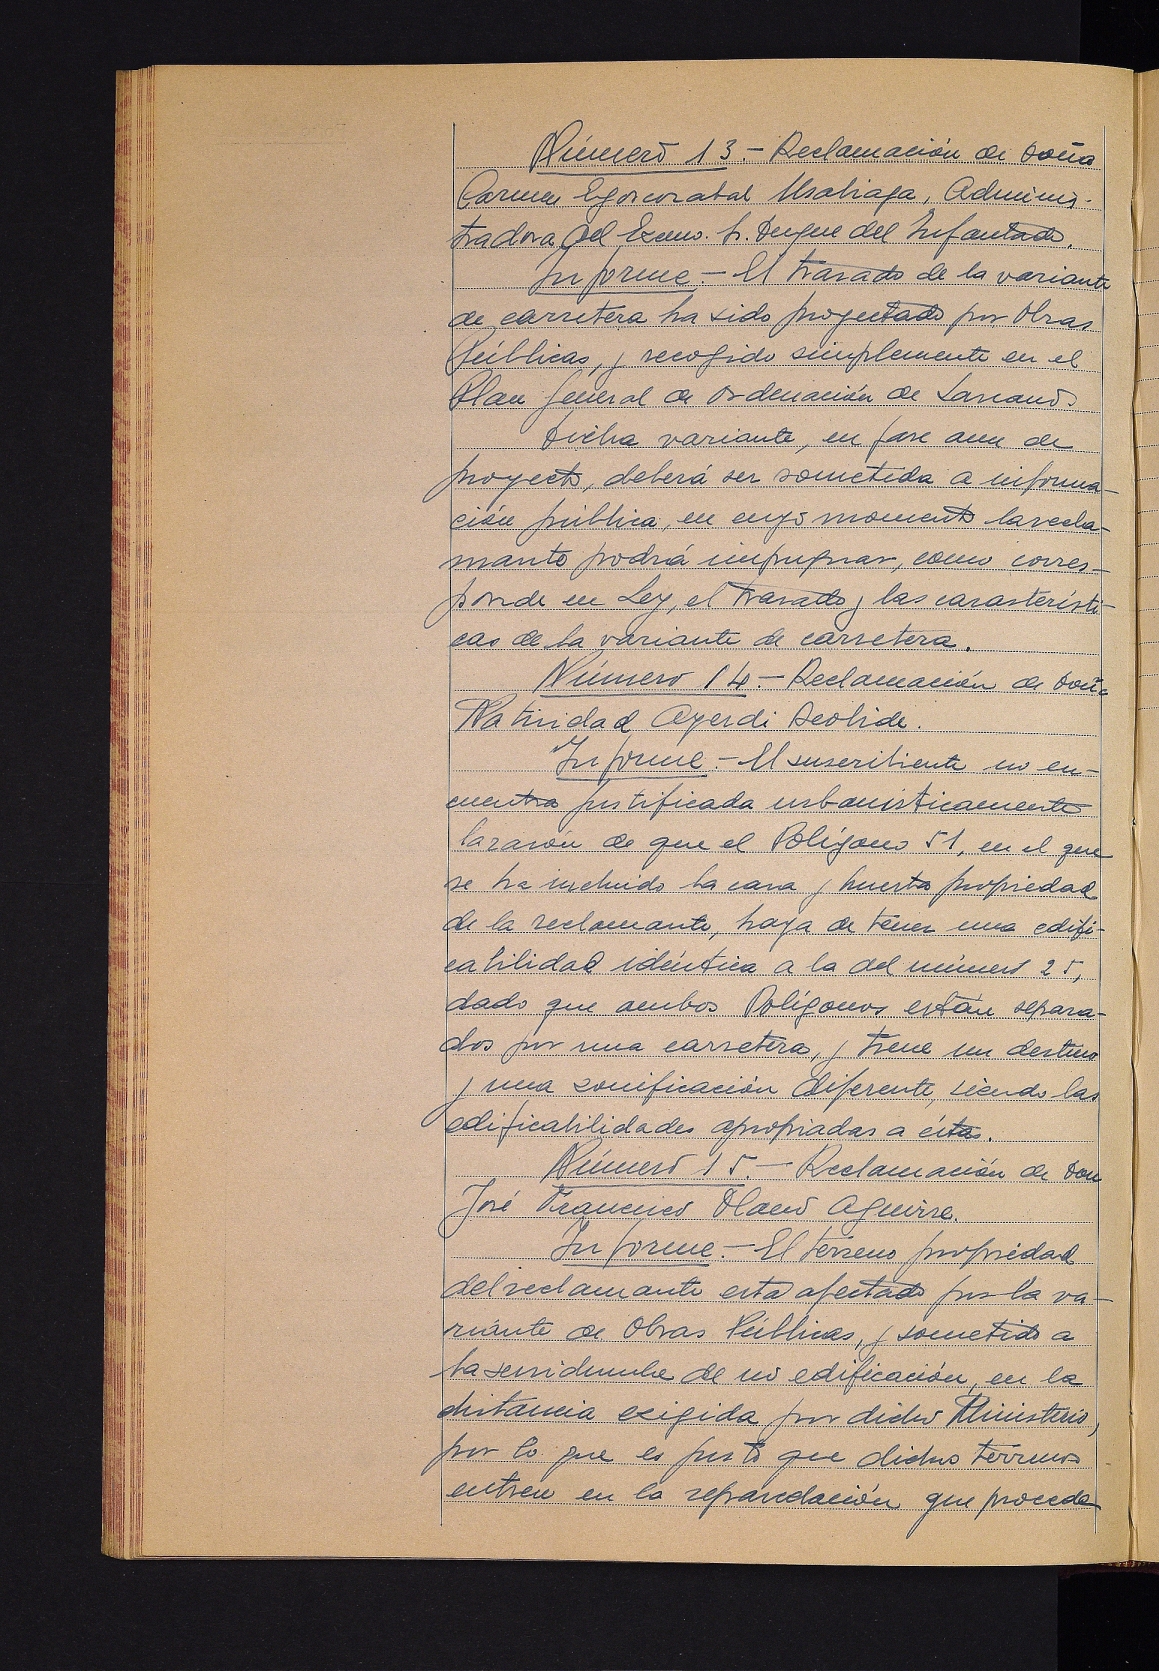 Número 13.- Reclamación de Doña
Carmen Egoscozabal Usabiaga, Adminis-
tradora del Excmo. Sr. Duque del Infantado.
Informe.- El trazado de la variante
de carretera ha sido proyectado por Obras
Públicas, y recogido simplemente en el
Plan General de Ordenación de Lazcano.
Dicha variante, en fase aun de
proyecto, deberá ser sometida a informa-
ción pública, en cuyo momento la recla-
mante podrá impugnar, como corres-
ponde en Ley, el trazado y las característi-
cas de la variante de carretera.
Número 14.- Reclamación de Doña
Natividad Ayerdi Seolide.
Informe.- El suscribiente no en-
cuentra justificada urbanísticamente
la razón de que el Polígono 51, en el que
se ha incluido la casa y huerta propiedad
de la reclamante, haya de tener una edifi-
cabilidad idéntica a la del número 25,
dado que ambos Polígonos están separa-
dos por una carretera, y tiene un destino
y una zonificación diferente, siendo las
edificabilidades apropiadas a éstas.
Número 15.- Reclamación de Don
José Francisco Olano Aguirre.
Informe.- El terreno propiedad
del reclamante esta afectado por la va-
riante de Obras Públicas, y sometido a
la servidumbre de no edificación, en la
distancia exigida por dicho Ministerio,
por lo que es justo que dichos terrenos
entren en la reparcelación que proceda